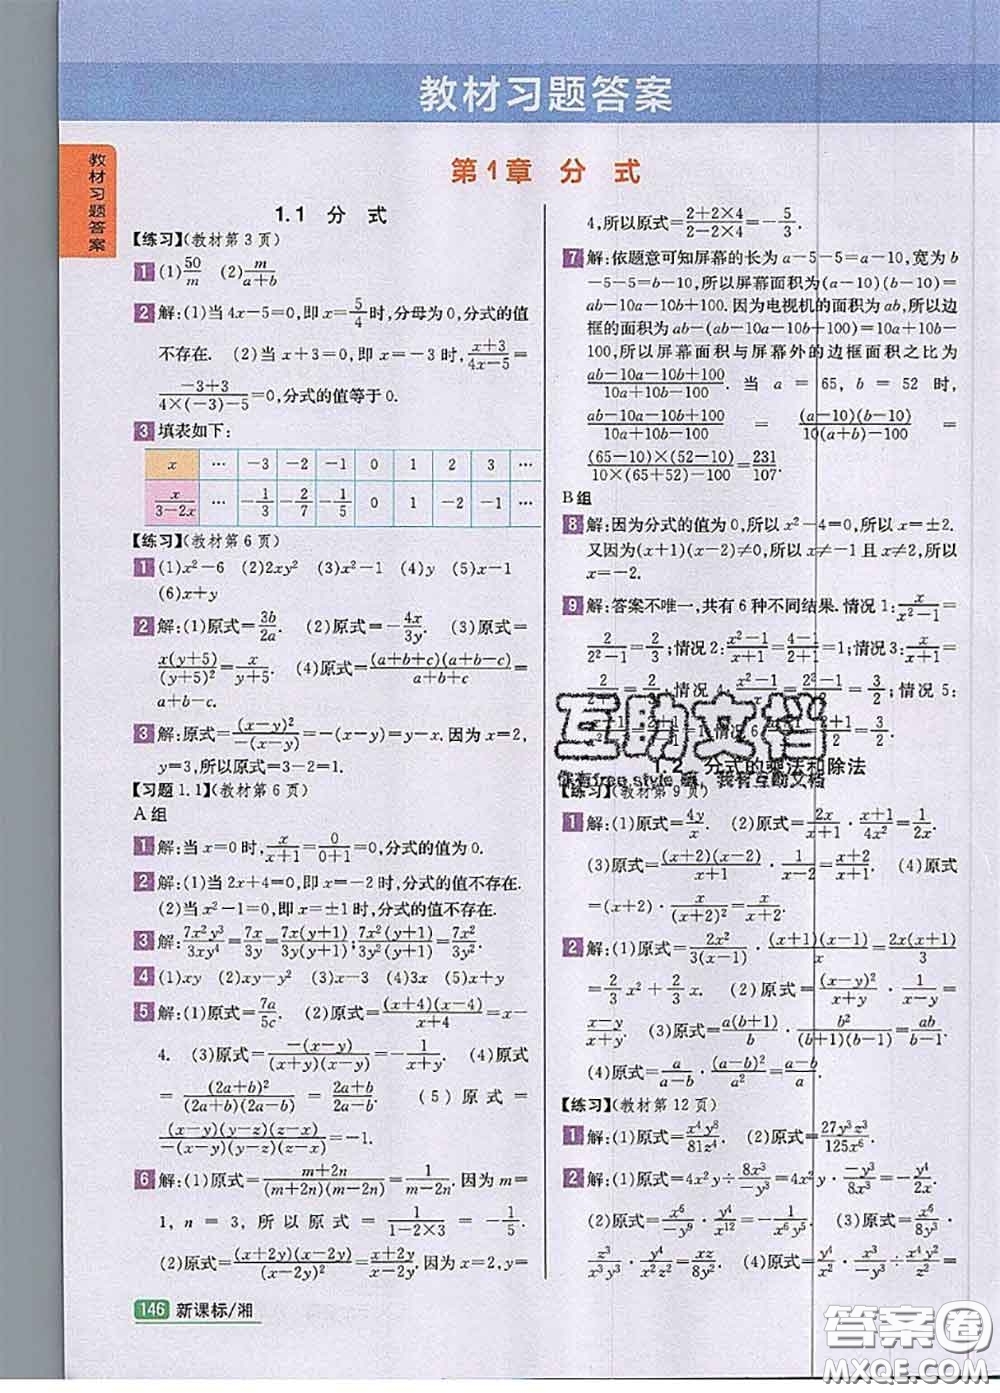 教材习题答案
教材习题答案
第1章 分 式
1.1 分 式
【练习】(教材第3页)
1 (1)50/m (2)m/(a+b)
2 解:(1)当4x-5=0,即x=5/4时,分母为0,分式的值
不存在. (2)当x+3=0,即x=-3时,(x+3)/(4x-5)=
(-3+3)/(4×(-3)-5)=0,分式的值等于0.
3 填表如下:
x … -3 -2 -1 0 1 2 3 …
x/(3-2x) … -1/3 -2/7 -1/5 0 1 -2 -1 …
【练习】(教材第6页)
1 (1)x²-6 (2)2xy² (3)x²-1 (4)y (5)x-1
(6)x+y
2 解:(1)原式=3b/2a. (2)原式=-4x/3y. (3)原式=
x(y+5)/(y+5)²=x/(y+5). (4)原式=(a+b+c)(a+b-c)/(a+b+c)=
a+b-c.
3 解:原式=(x-y)²/-(x-y)=-(x-y)=y-x.因为x=2,
y=3,所以原式=3-2=1.
【习题1.1】(教材第6页)
A组
1 解:当x=0时,x/(x+1)=0/(0+1)=0,分式的值为0.
2 解:(1)当2x+4=0,即x=-2时,分式的值不存在.
(2)当x²-1=0,即x=±1时,分式的值不存在.
3 解:7x²y³/3xy⁴=7x/3y=7x(y+1)/3y(y+1);7x²(y+1)/3y²(y+1)=7x²/3y².
4 (1)xy (2)xy-y² (3)x-3 (4)3x (5)x+y
5 解:(1)原式=7a/5c. (2)原式=(x+4)(x-4)/(x+4)=x-
4. (3)原式=-(x-y)/(x+y)(x-y)=-1/(x+y). (4)原式
=(2a+b)²/(2a+b)(2a-b)=(2a+b)/(2a-b). (5)原式=
(x-y)(y-z)(z-x)/-(x-y)(y-z)(z-x)=-1.
6 解:(1)原式=(m+2n)/(m+2n)(m-2n)=1/(m-2n).因为m=
1,n=3,所以原式=1/(1-2×3)=-1/5.
(2)原式=(x+2y)(x-2y)/(x-2y)²=(x+2y)/(x-2y).因为x=2,y=
4,所以原式=(2+2×4)/(2-2×4)=-5/3.
7 解:依题意可知屏幕的长为a-5-5=a-10,宽为b
-5-5=b-10,所以屏幕面积为(a-10)(b-10)=
ab-10a-10b+100.因为电视机的面积为ab,所以边
框的面积为ab-(ab-10a-10b+100)=10a+10b-
100,所以屏幕面积与屏幕外的边框面积之比为
(ab-10a-10b+100)/(10a+10b-100).当a=65,b=52时,
(ab-10a-10b+100)/(10a+10b-100)=(a-10)(b-10)/(10(a+b)-100)=
(65-10)×(52-10)/(10×(65+52)-100)=231/107.
B组
8 解:因为分式的值为0,所以x²-4=0,所以x=±2.
又因为(x+1)(x-2)≠0,所以x≠-1且x≠2,所以
x=-2.
9 解:答案不唯一,共有6种不同结果.情况1:x/(x²-1)=
2/(2²-1)=2/3;情况2:(x²-1)/(x+1)=(4-1)/(2+1)=1;情况3:
互助文档
你有free style 吗,我有互助文档
1.2 分式的乘法和除法
【练习】(教材第9页)
1 解:(1)原式=4y/x. (2)原式=2x/(x+1)·(x+1)/4x²=1/2x.
(3)原式=(x+2)(x-2)/(x+1)·(x+1)/(x-2)=x+2. (4)原式
=(x+2)·x/(x+2)²=x/(x+2).
2 解:(1)原式=2x²/3(x-1)·(x+1)(x-1)/x=2x(x+1)/3=
2/3x²+2/3x. (2)原式=(x-y)²/(x+y)·1/(x-y)=
(x-y)/(x+y). (3)原式=a(b+1)/b·b²/(b+1)(b-1)=ab/(b-1).
(4)原式=a/(a-b)·(a-b)²/a²=(a-b)/a.
【练习】(教材第12页)
1 解:(1)原式=x⁴y⁸/81z⁴. (2)原式=27y³z³/125x⁶.
2 解:(1)原式=4x²y÷8x³/-y³=4x²y·-y³/8x³=-y⁴/2x.
(2)原式=x⁶/-y⁹·y⁴/x¹²=-1/x⁶y⁵. (3)原式=x⁶/8y³·
z³/x³·y²/x²z²=xz/8y. (4)原式=
146 新课标/湘
答案圈
MXQE.COM